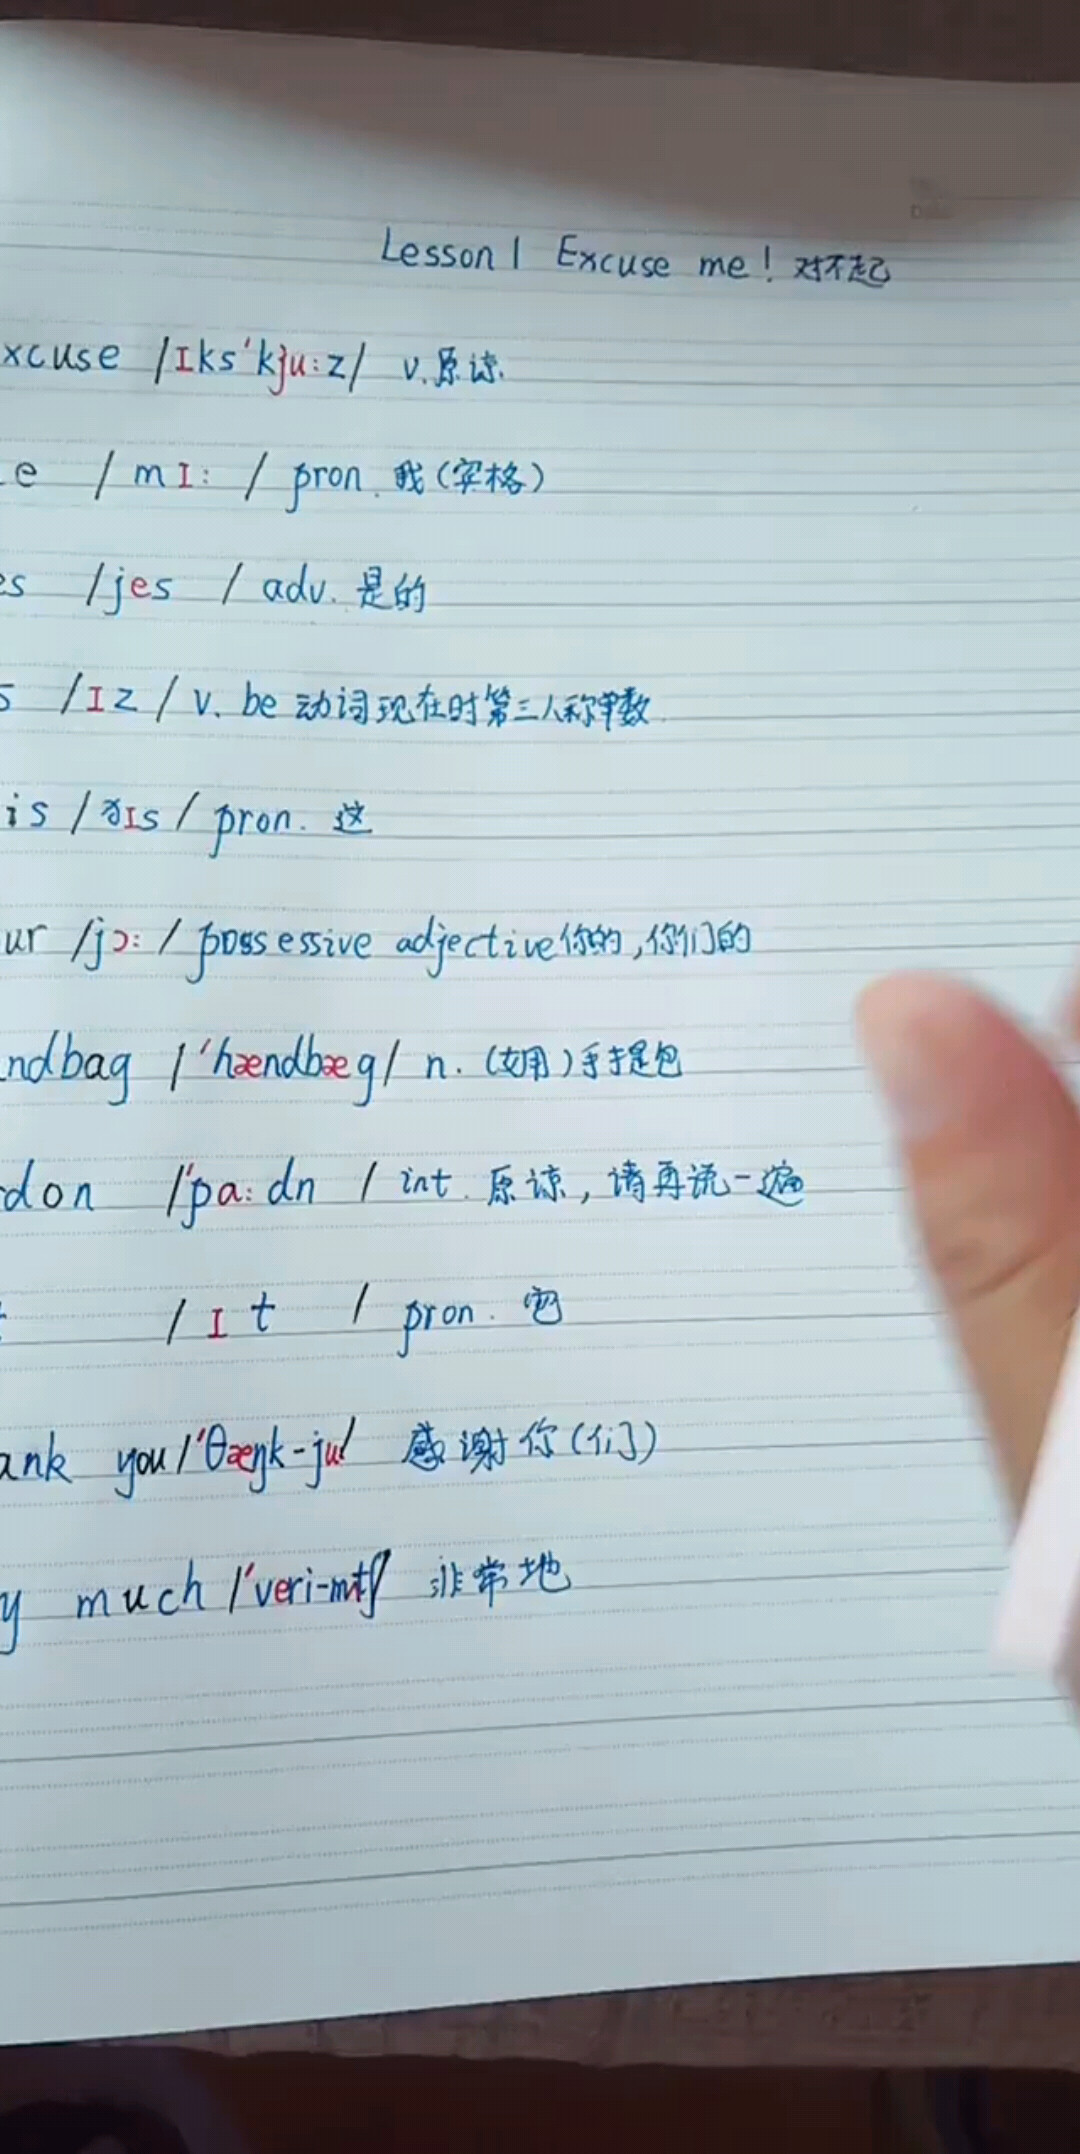 Lesson 1 Excuse me! 对不起
xcuse /ɪks'kju:z/ v.原谅.
e /mɪ:/ pron. 我(宾格)
es /jes/ adv. 是的
s /ɪz/ v. be 动词现在时第三人称单数.
is /ðɪs/ pron. 这
ur /jɔ:/ possessive adjective 你的,你们的
ndbag /'hændbæg/ n. (女用)手提包
don /'pa:dn/ int. 原谅,请再说一遍
/ɪt/ pron. 它
ank you /'θæŋk-ju/ 感谢你(们)
y much /'veri-mtʃ/ 非常地